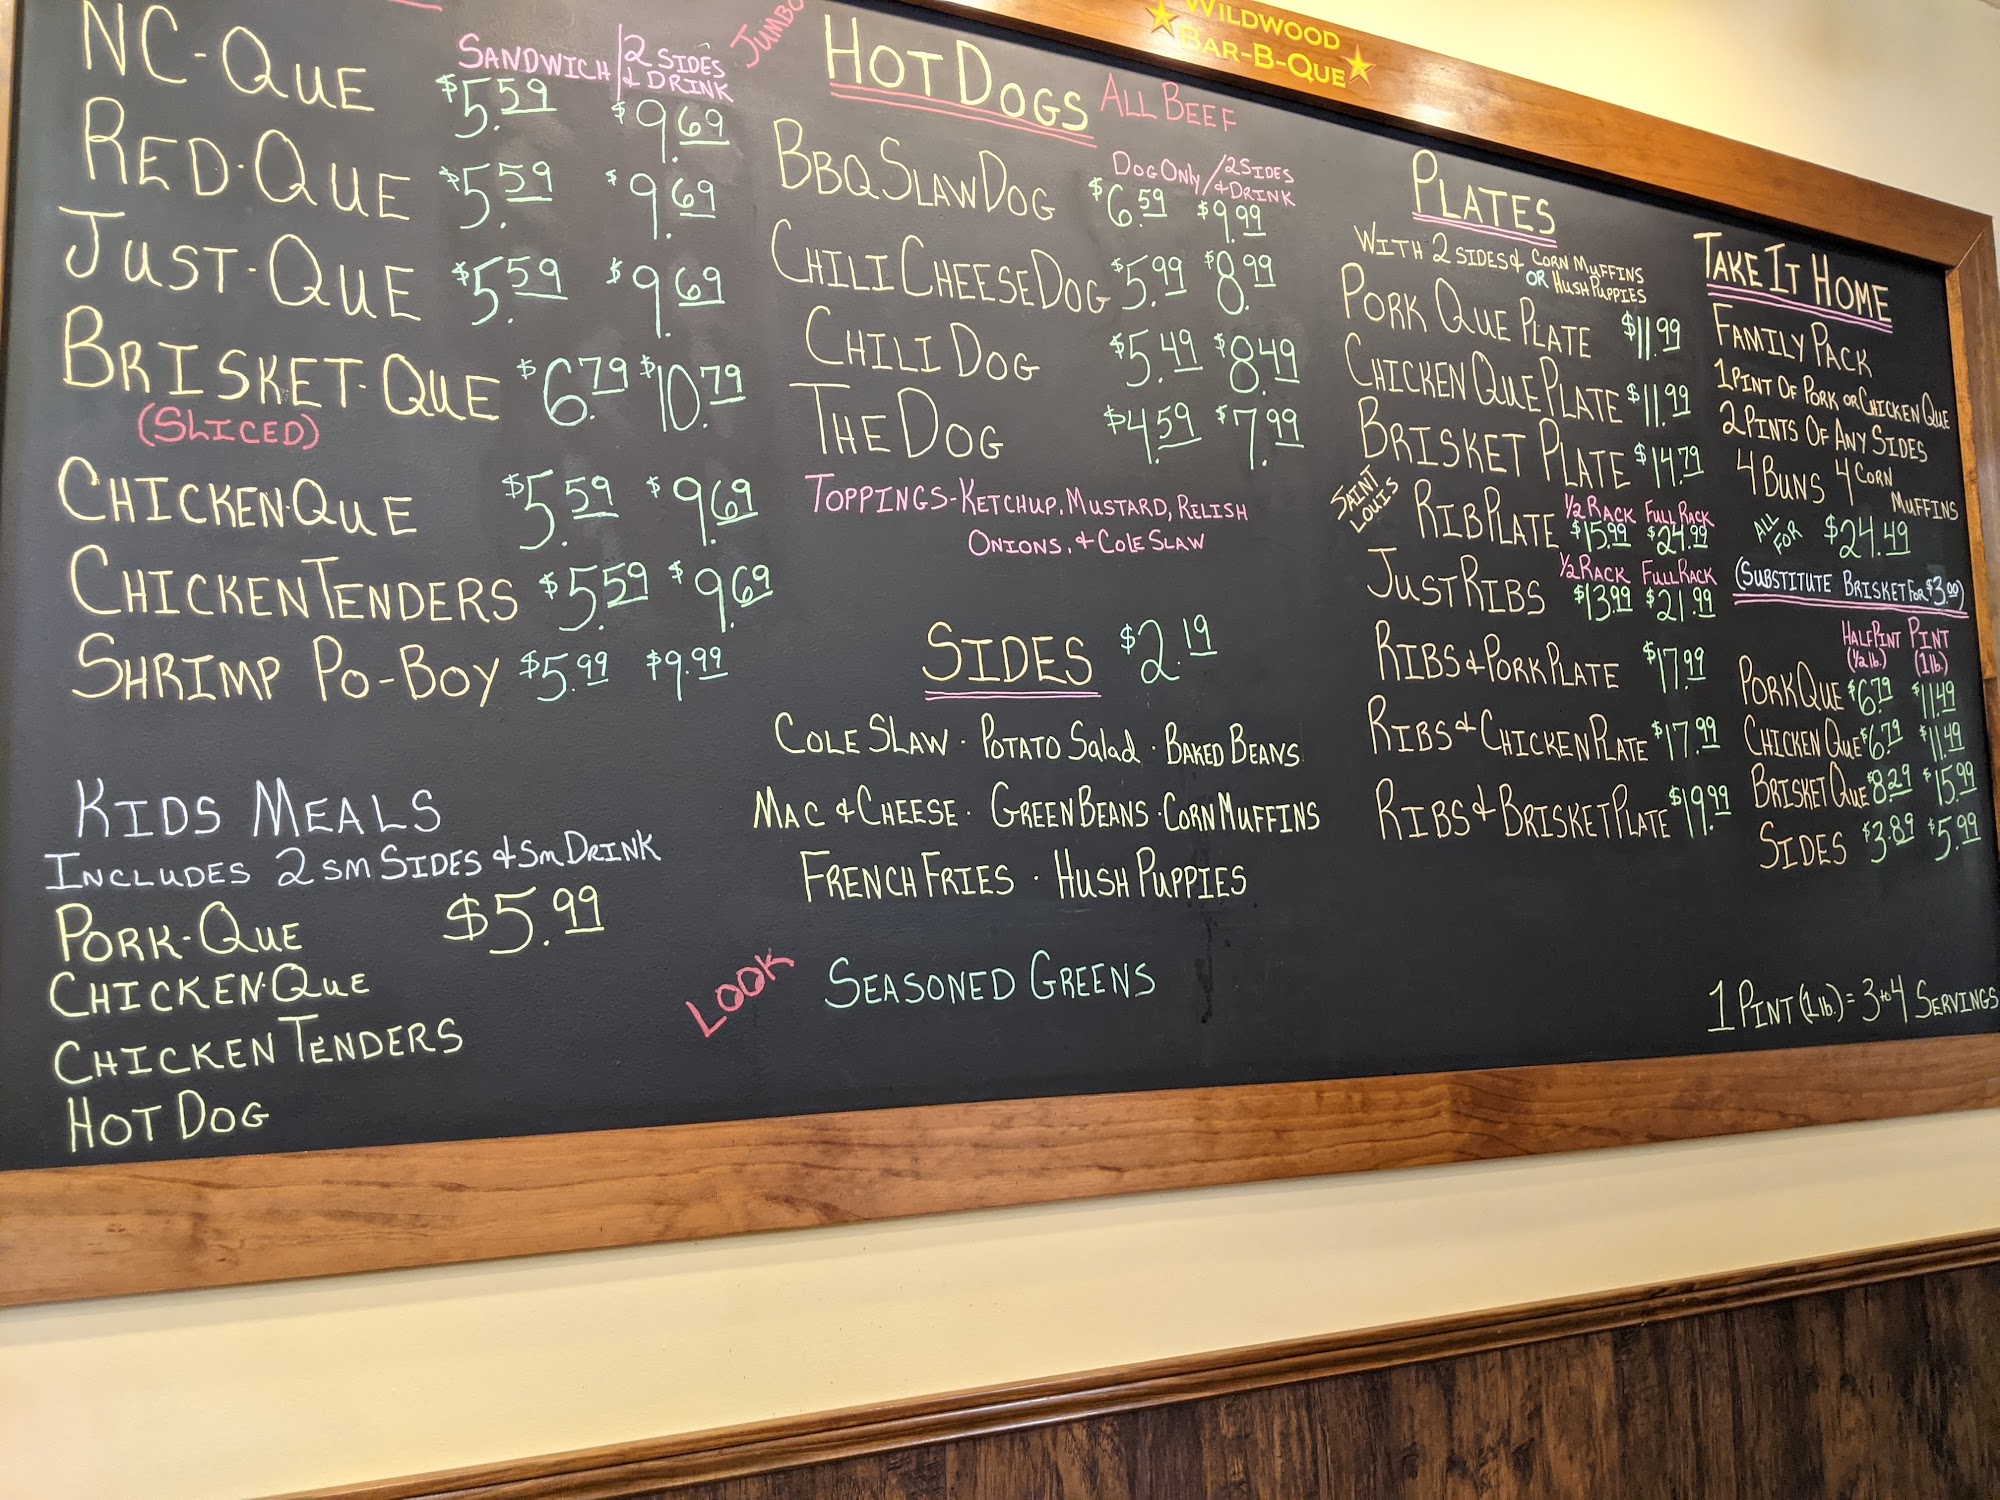 WILDWOOD
BAR-B-QUE
SANDWICH / 2 SIDES & DRINK
NC-QUE $5.59 $9.69
RED-QUE $5.59 $9.69
JUST-QUE $5.59 $9.69
BRISKET-QUE $6.79 $10.79
(SLICED)
CHICKEN-QUE $5.59 $9.69
CHICKEN TENDERS $5.59 $9.69
SHRIMP PO-BOY $5.99 $9.99
KIDS MEALS
INCLUDES 2 SM SIDES & SM DRINK
PORK-QUE $5.99
CHICKEN-QUE
CHICKEN TENDERS
HOT DOG
JUMBO
HOT DOGS ALL BEEF
DOG ONLY / 2 SIDES & DRINK
BBQ SLAW DOG $6.59 $9.99
CHILI CHEESE DOG $5.99 $8.99
CHILI DOG $5.49 $8.49
THE DOG $4.59 $7.99
TOPPINGS-KETCHUP, MUSTARD, RELISH
ONIONS, & COLE SLAW
SIDES $2.19
COLE SLAW · POTATO Salad · BAKED BEANS
MAC & CHEESE · GREEN BEANS · CORN MUFFINS
FRENCH FRIES · HUSH PUPPIES
LOOK SEASONED GREENS
PLATES
WITH 2 SIDES & CORN MUFFINS
OR HUSH PUPPIES
PORK QUE PLATE $11.99
CHICKEN QUE PLATE $11.99
BRISKET PLATE $14.79
SAINT LOUIS
1/2 RACK FULL RACK
RIB PLATE $15.99 $24.99
1/2 RACK FULL RACK
JUST RIBS $13.99 $21.99
RIBS & PORK PLATE $17.99
RIBS & CHICKEN PLATE $17.99
RIBS & BRISKET PLATE $19.99
TAKE IT HOME
FAMILY PACK
1 PINT OF PORK OR CHICKEN QUE
2 PINTS OF ANY SIDES
4 BUNS 4 CORN MUFFINS
ALL FOR $24.49
(SUBSTITUTE BRISKET FOR $3.00)
HALF PINT PINT
(1/2 lb.) (1 lb.)
PORK QUE $6.79 $11.49
CHICKEN QUE $6.79 $11.49
BRISKET QUE $8.29 $15.99
SIDES $3.89 $5.99
1 PINT (1 lb.) = 3 to 4 SERVINGS